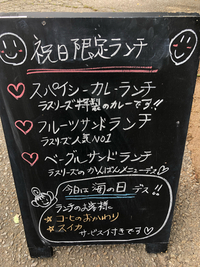 祝日限定ランチ
スパイシーカレーランチ
ラスリーズ特製のカレーです!!
フルーツサンドランチ
ラスリーズ人気NO1
ベーグルサンドランチ
ラスリーズのかんばんメニューデス♡
今日は海の日デス!!
ランチのお客様に
☆コーヒーのおかわり
☆スイカ
サービス付きです♡